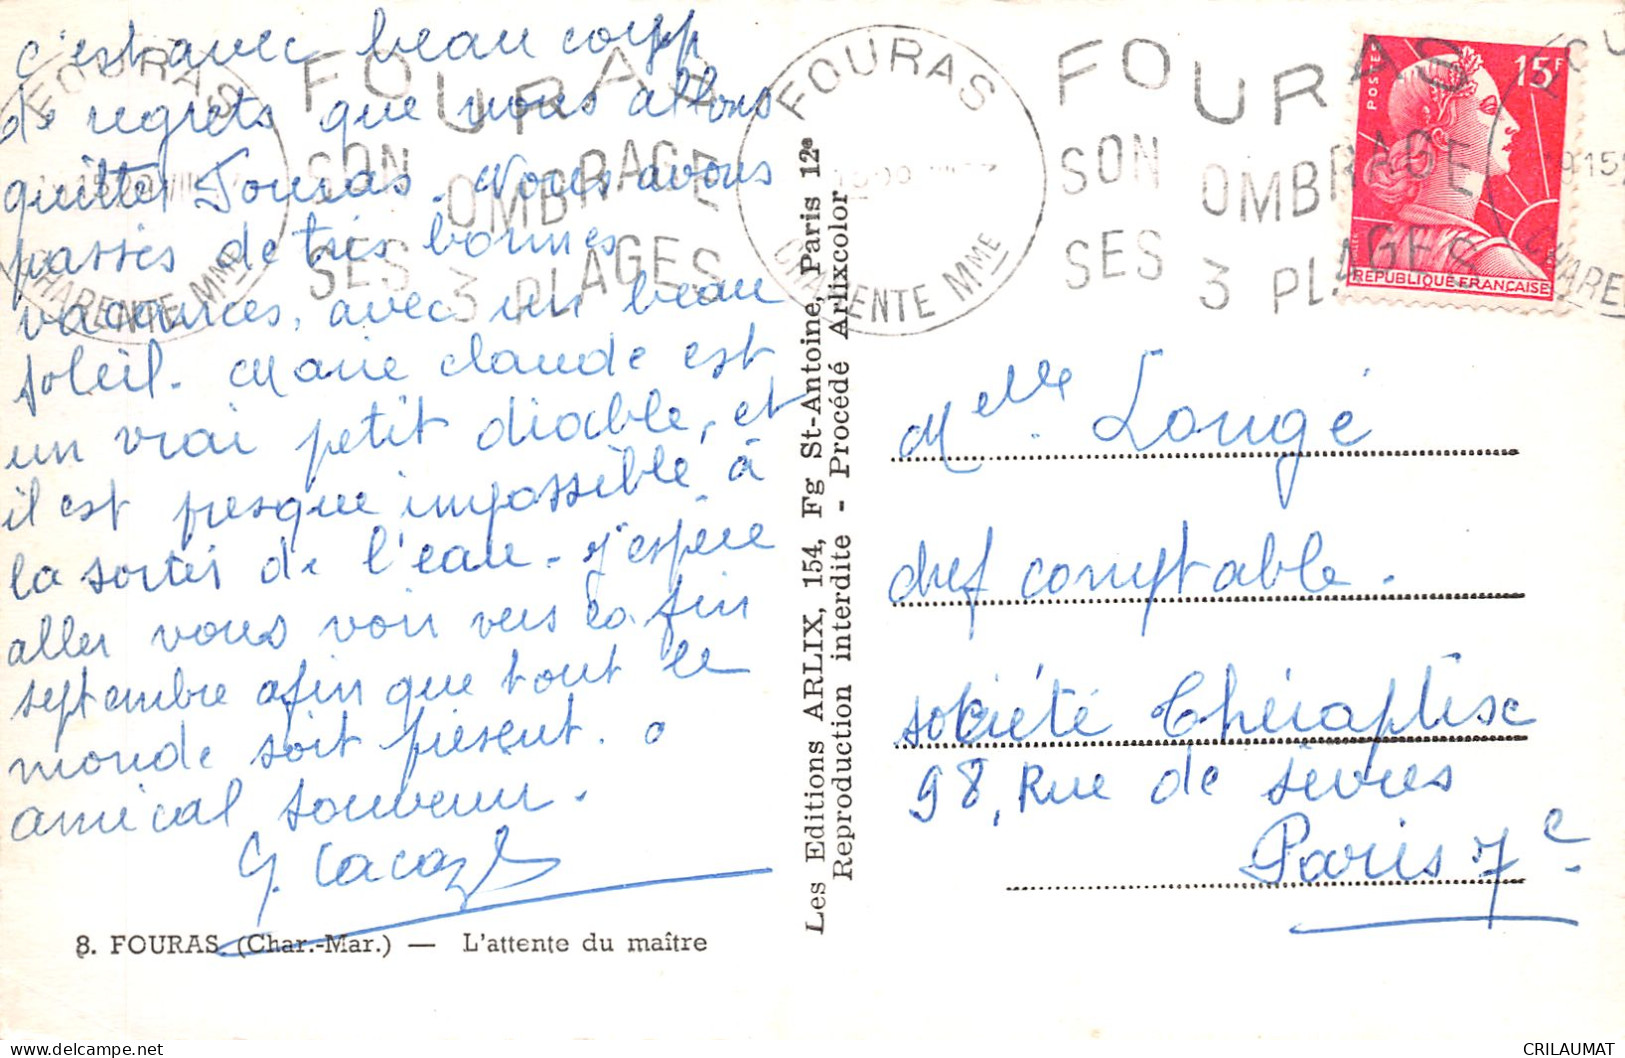 c'est avec beaucoup
de regrets que nous allons
quitter Fouras. Nous avons
passés de très bonnes
vacances, avec un beau
soleil. Marie claude est
un vrai petit diable, et
il est presque impossible à
la sortir de l'eau. J'espère
aller vous voir vers la fin
septembre afin que tout le
monde soit présent.
amical souvenir.
8. FOURAS. (Char.-Mar.) — L'attente du maître
Les Editions ARLIX, 154, Fg St-Antoine, Paris 12e
Reproduction interdite - Procédé Arlixcolor
FOURAS
CHARENTE Mme
FOURAS
SON OMBRAGE
SES 3 PLAGES
FOURAS
CHARENTE Mme
FOURAS
SON OMBRAGE
SES 3 PLAGES
POSTES
15F
REPUBLIQUE FRANÇAISE
Melle. Longé
chef comptable.
société Théraplix
98, Rue de sèvres
Paris 7e
CRILAUMAT